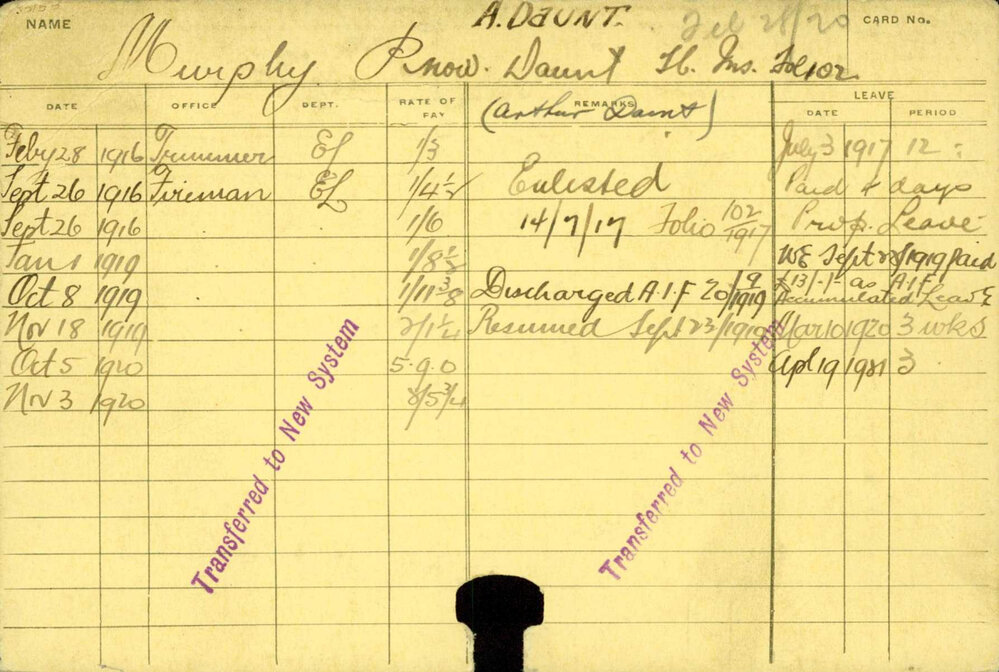 NAME A. DAUNT. Feb 28/20 CARD No.
Murphy P now. Daunt Hb. Ins. Fol 102
DATE OFFICE DEPT. RATE OF PAY REMARKS LEAVE DATE PERIOD
(Arthur Daunt)
Feby 28 1916 Trimmer EL 1/3 July 3 1917 12
Sept 26 1916 Fireman EL 1/4½ Enlisted Paid 4 days
Sept 26 1916 1/6 14/7/17 Folio 102/1917 Prop. Leave
Jan 1 1919 1/8½ WE Sept 28/1919 Paid
Oct 8 1919 1/11⅜ Discharged A.I.F 20/9/1919 £13/-/- as A.I.F. Accumulated Leave
Nov 18 1919 2/1¼ Resumed Sept 23/1919 Mar 10 1920 3 wks
Oct 5 1920 5.9.0 Apl 19 1921 3
Nov 3 1920 /5¾
Transferred to New System
Transferred to New System